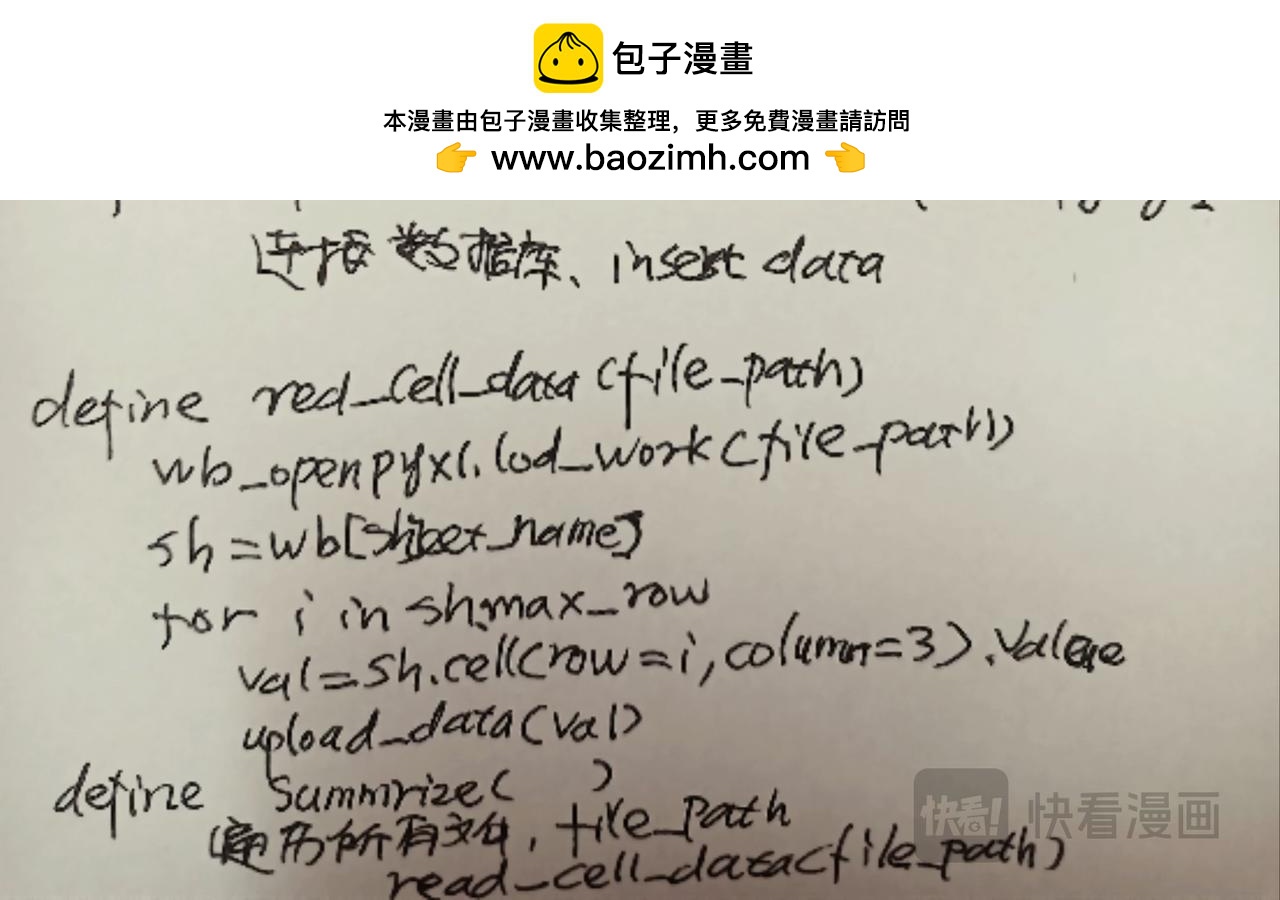 包子漫畫
本漫畫由包子漫畫收集整理，更多免費漫畫請訪問
👉 www.baozimh.com 👈
连接数据库、insert data
define red_cell_data(file_path)
wb_openpyxl.lod_work(file_path)
sh=wb[sheet_name]
for i in sh.max_row
val=sh.cell(row=i,column=3).value
upload_data(val)
define Summrize( )
遍历所有文件, file_path
read_cell_data(file_path)
快看! 快看漫画